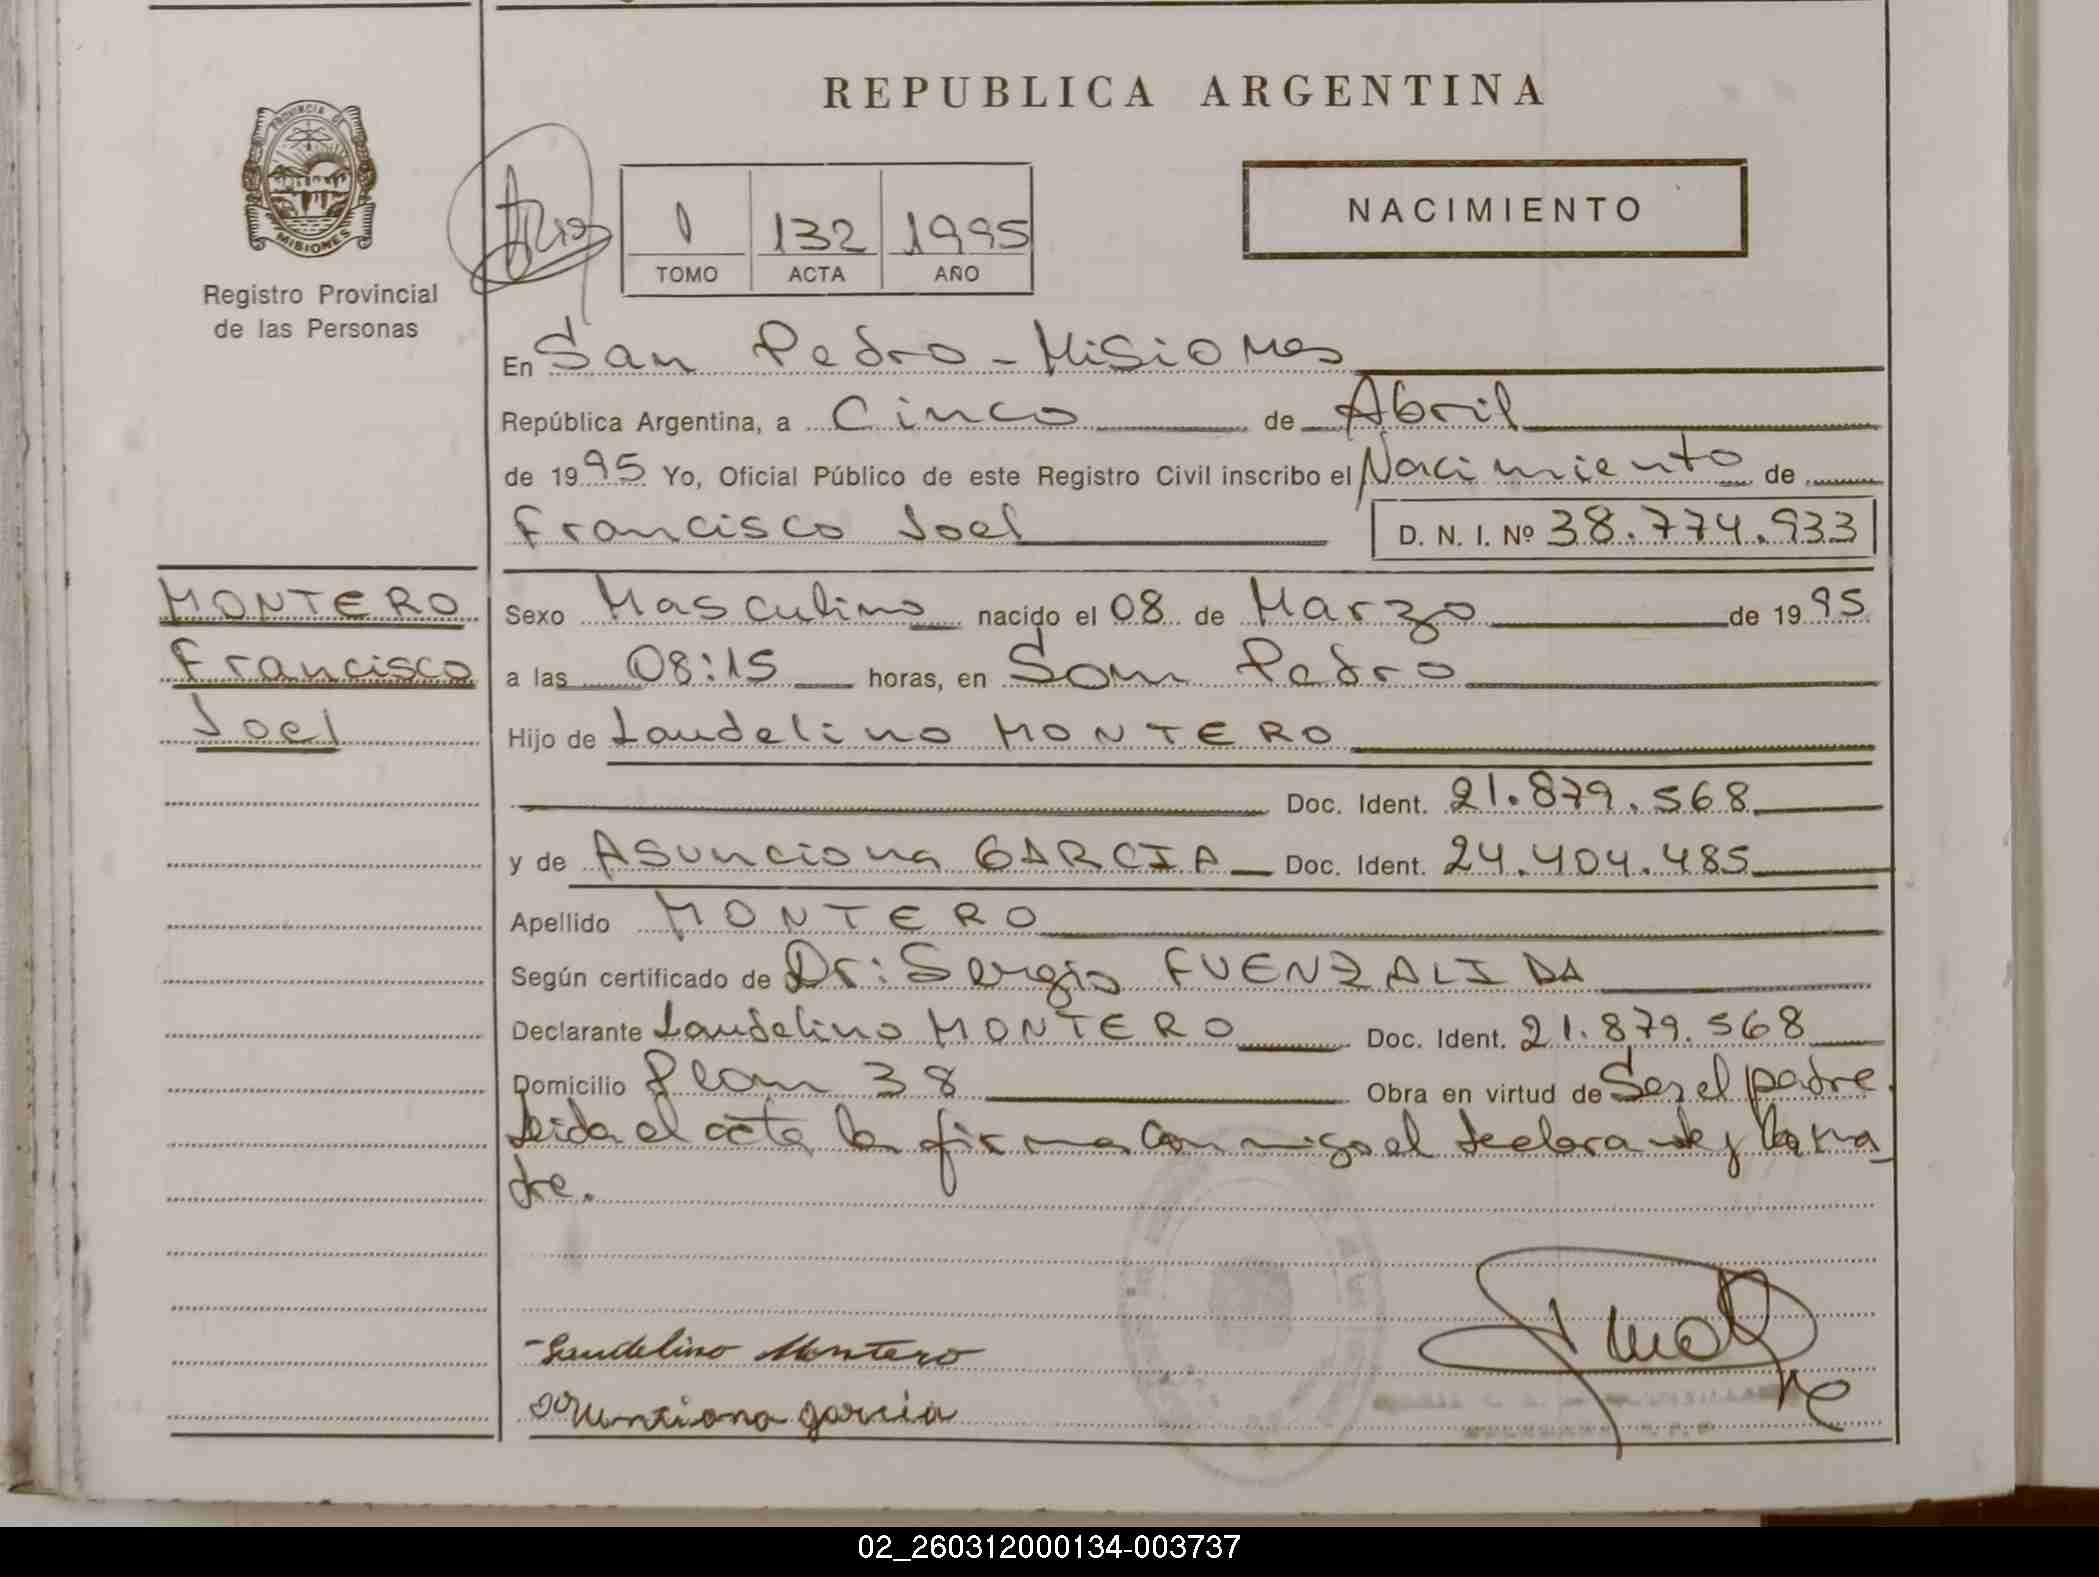 REPUBLICA ARGENTINA
PROVINCIA DE
MISIONES
Registro Provincial
de las Personas
1 132 1995
TOMO ACTA AÑO
NACIMIENTO
En San Pedro - Misiones
República Argentina, a Cinco de Abril
de 1995 Yo, Oficial Público de este Registro Civil inscribo el Nacimiento de
Francisco Joel D. N. I. Nº 38.774.933
MONTERO
Francisco
Joel
Sexo Masculino nacido el 08 de Marzo de 1995
a las 08:15 horas, en San Pedro
Hijo de Laudelino MONTERO
Doc. Ident. 21.879.568
y de Asunciona GARCIA Doc. Ident. 24.404.485
Apellido MONTERO
Según certificado de Dr: Sergio FUENZALIDA
Declarante Laudelino MONTERO Doc. Ident. 21.879.568
Domicilio Plan 38 Obra en virtud de Ser el padre.
Leida el acta la firma conmigo el declarante y la ma
dre.
Laudelino Montero
Asunciona garcia
02_260312000134-003737